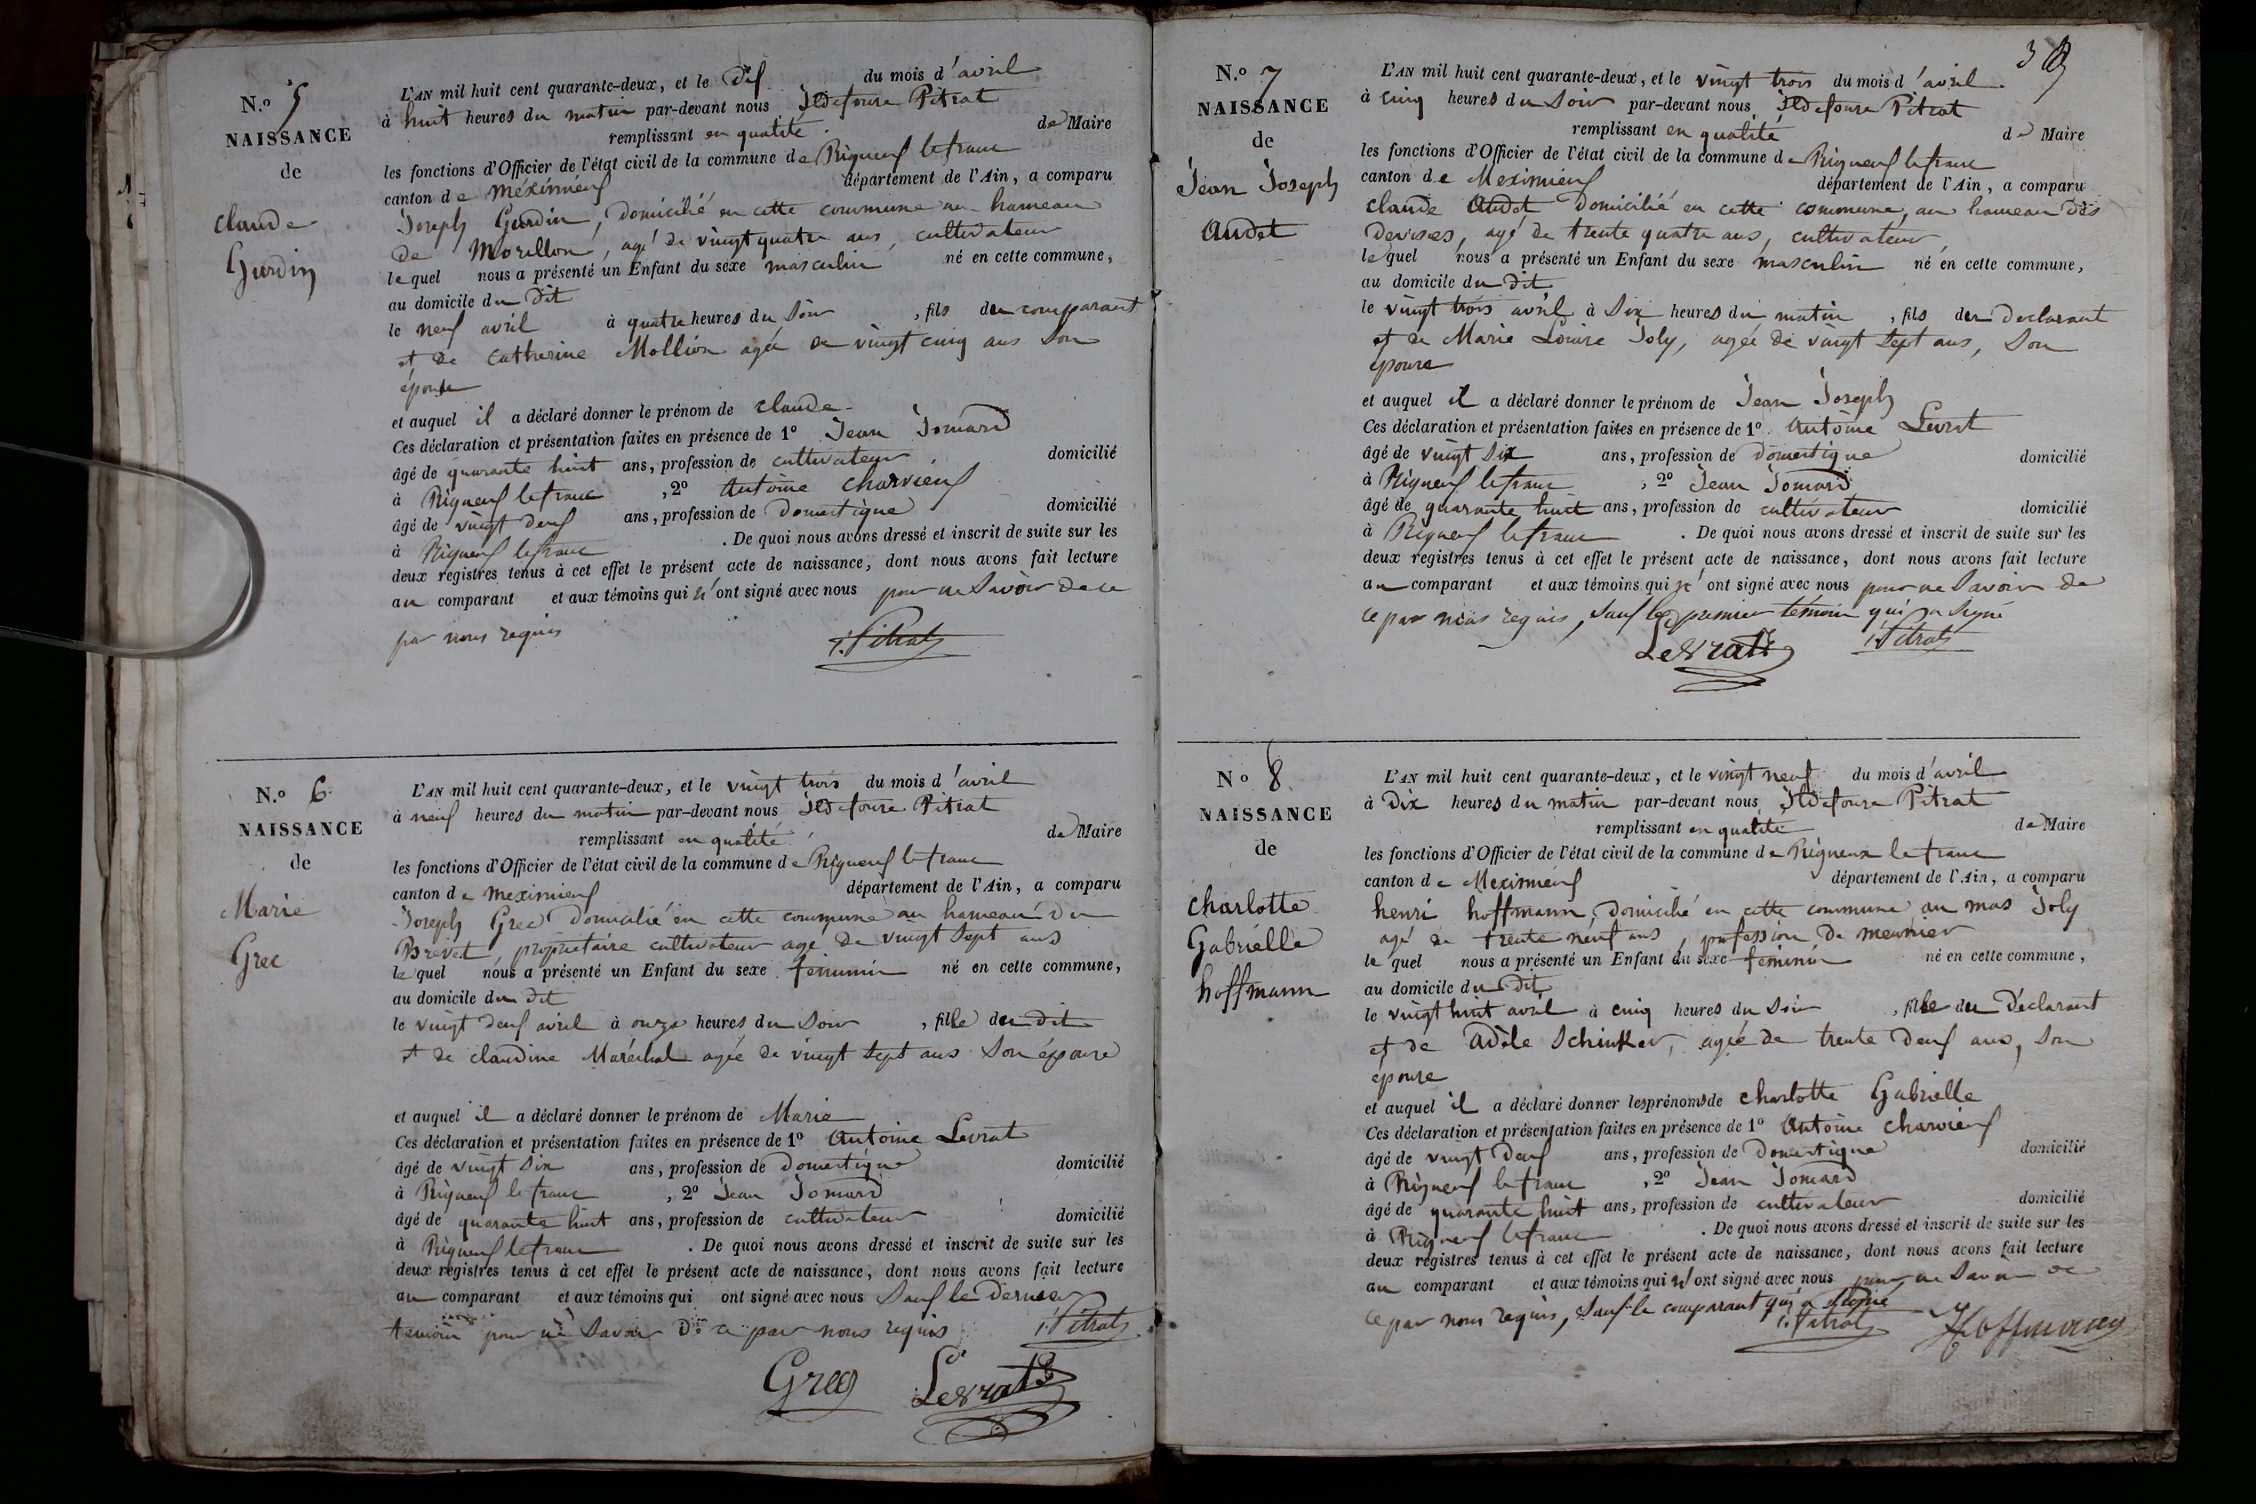 N.o 5
NAISSANCE
de
claude
Gurdin
L'AN mil huit cent quarante-deux, et le dix du mois d'avril
à huit heures du matin par-devant nous Ildefonse Pitrat
remplissant en qualité de Maire
les fonctions d'Officier de l'état civil de la commune de Rigneux le franc
canton de Méximieux département de l'Ain, a comparu
Joseph Gurdin, domicilié en cette commune au hameau
de Morillon, agé de vingt quatre ans, cultivateur
lequel nous a présenté un Enfant du sexe masculin né en cette commune,
au domicile du dit
le neuf avril à quatre heures du soir, fils du comparant
et de catherine Mollion agée de vingt cinq ans son
épouse
et auquel il a déclaré donner le prénom de claude
Ces déclaration et présentation faites en présence de 1o Jean Jomard
âgé de quarante huit ans, profession de cultivateur domicilié
à Rigneux le franc, 2o Antoine Charvieux
âgé de vingt deux ans, profession de domestique domicilié
à Rigneux le franc. De quoi nous avons dressé et inscrit de suite sur les
deux registres tenus à cet effet le présent acte de naissance, dont nous avons fait lecture
au comparant et aux témoins qui n'ont signé avec nous pour ne savoir de ce
par nous requis
i. Pitrat
N.o 6
NAISSANCE
de
Marie
Grec
L'AN mil huit cent quarante-deux, et le vingt trois du mois d'avril
à neuf heures du matin par-devant nous Ildefonse Pitrat
remplissant en qualité de Maire
les fonctions d'Officier de l'état civil de la commune de Rigneux le franc
canton de meximieux département de l'Ain, a comparu
Joseph Grec domicilié en cette commune au hameau du
Brevet, propriétaire cultivateur agé de vingt sept ans
lequel nous a présenté un Enfant du sexe féminin né en cette commune,
au domicile du dit
le vingt deux avril à onze heures du soir, fille du dit
et de claudine Maréchal agée de vingt sept ans son épouse
et auquel il a déclaré donner le prénom de Marie
Ces déclaration et présentation faites en présence de 1o Antoine Levrat
âgé de vingt six ans, profession de domestique domicilié
à Rigneux le franc, 2o Jean Jomard
âgé de quarante huit ans, profession de cultivateur domicilié
à Rigneux le franc. De quoi nous avons dressé et inscrit de suite sur les
deux registres tenus à cet effet le présent acte de naissance, dont nous avons fait lecture
au comparant et aux témoins qui ont signé avec nous sauf le dernier
témoin pour ne savoir de ce par nous requis
i. Pitrat
Grec Levrat
3
N.o 7
NAISSANCE
de
Jean Joseph
Audet
L'AN mil huit cent quarante-deux, et le vingt trois du mois d'avril
à cinq heures du soir par-devant nous Ildefonse Pitrat
remplissant en qualité de Maire
les fonctions d'Officier de l'état civil de la commune de Rigneux le franc
canton de Meximieux département de l'Ain, a comparu
claude Audet domicilié en cette commune, au hameau des
Devises, agé de trente quatre ans, cultivateur
lequel nous a présenté un Enfant du sexe masculin né en cette commune,
au domicile du dit
le vingt trois avril à six heures du matin, fils du déclarant
et de Marie Louise Joly, agée de vingt sept ans, son
épouse
et auquel il a déclaré donner le prénom de Jean Joseph
Ces déclaration et présentation faites en présence de 1o Antoine Levrat
âgé de vingt six ans, profession de domestique domicilié
à Rigneux le franc, 2o Jean Jomard
âgé de quarante huit ans, profession de cultivateur domicilié
à Rigneux le franc. De quoi nous avons dressé et inscrit de suite sur les
deux registres tenus à cet effet le présent acte de naissance, dont nous avons fait lecture
au comparant et aux témoins qui n'ont signé avec nous pour ne savoir de
ce par nous requis, sauf le premier témoin qui a signé
Levrat i. Pitrat
No 8
NAISSANCE
de
charlotte
Gabriélle
hoffmann
L'AN mil huit cent quarante-deux, et le vingt neuf du mois d'avril
à dix heures du matin par-devant nous Ildefonse Pitrat
remplissant en qualité de Maire
les fonctions d'Officier de l'état civil de la commune de Rigneux le franc
canton de Meximieux département de l'Ain, a comparu
henri hoffmann, domicilié en cette commune au mas Joly
agé de trente neuf ans, profession de meunier
lequel nous a présenté un Enfant du sexe féminin né en cette commune,
au domicile du dit
le vingt huit avril à cinq heures du soir, fille du déclarant
et de Adèle Schinker, agée de trente deux ans, son
épouse
et auquel il a déclaré donner les prénoms de charlotte Gabrielle
Ces déclaration et présentation faites en présence de 1o Antoine Charvieux
âgé de vingt deux ans, profession de domestique domicilié
à Rigneux le franc, 2o Jean Jomard
âgé de quarante huit ans, profession de cultivateur domicilié
à Rigneux le franc. De quoi nous avons dressé et inscrit de suite sur les
deux registres tenus à cet effet le présent acte de naissance, dont nous avons fait lecture
au comparant et aux témoins qui n'ont signé avec nous pour ne savoir de
ce par nous requis, sauf le comparant qui a signé
i. Pitrat Hoffmann